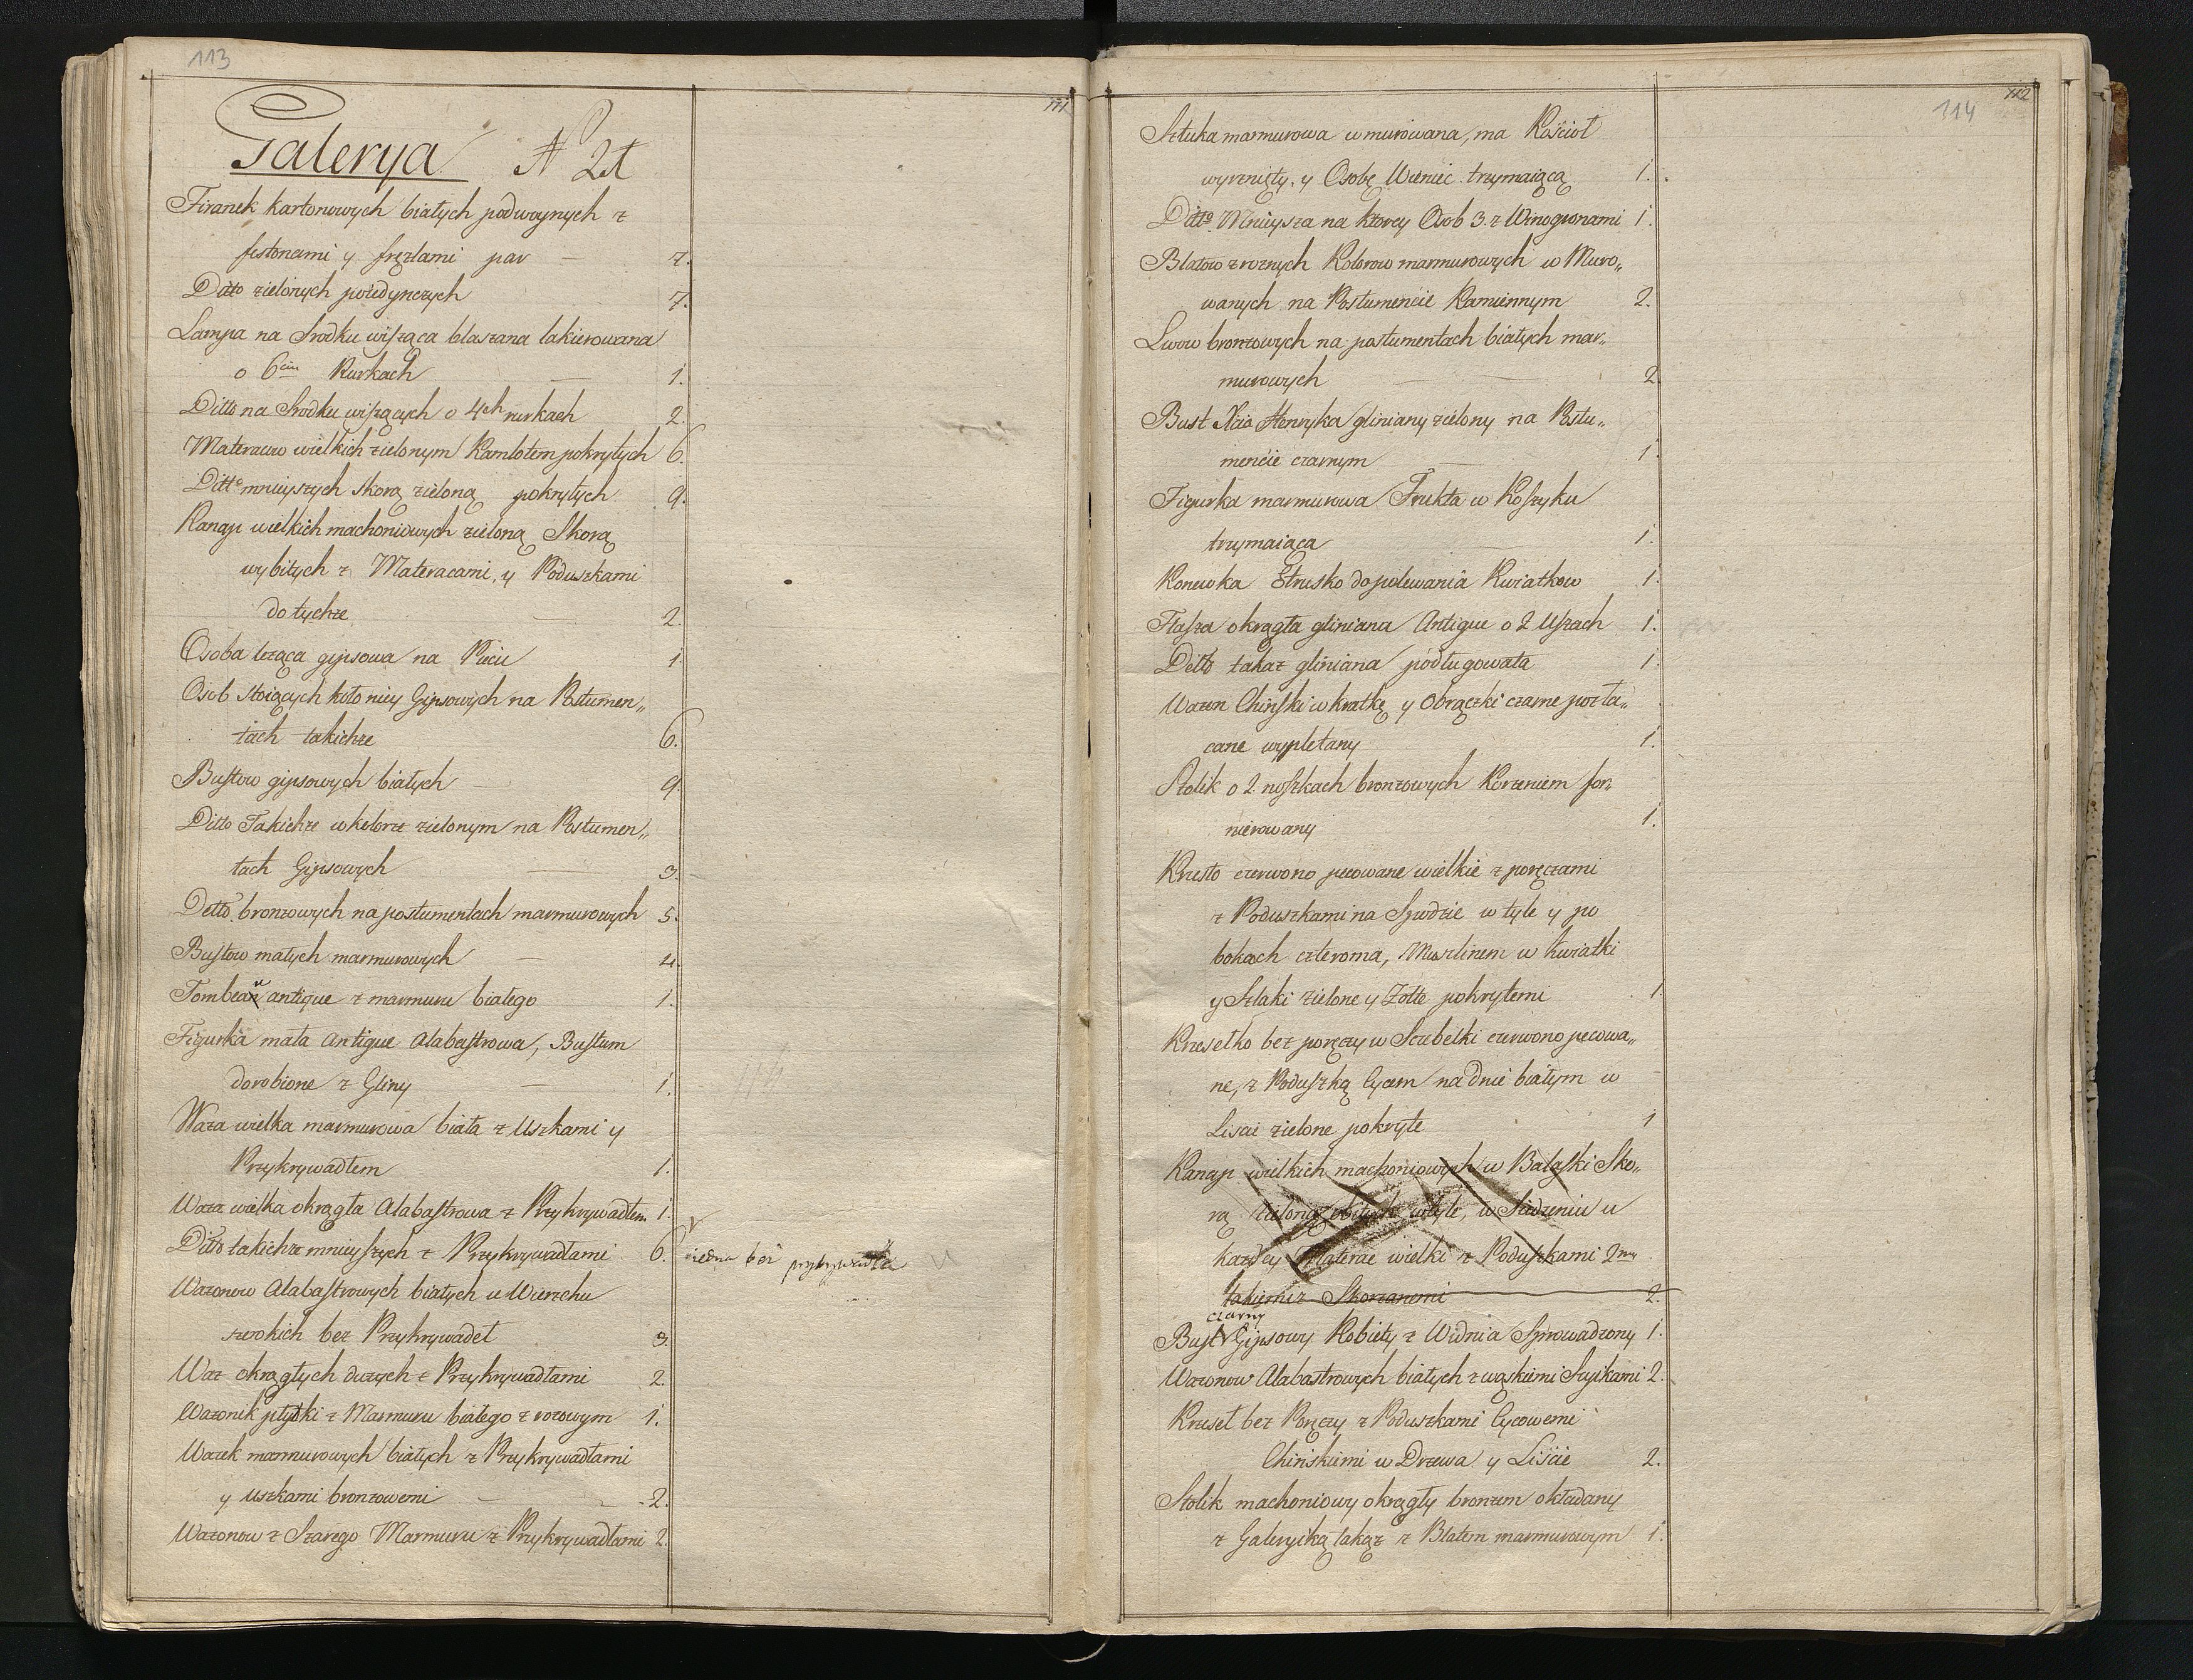 113
111
Galerya N 21
Firanek kartonowych białych podwoynych z
festonami y fręzlami par — 7.
Ditto zielonych poiedynczych 7.
Lampa na Srodku wisząca blaszana lakierowana
o 6ciu Rurkach — 1.
Ditto na Srodku wiszących o 4ch rurkach 2.
Materacow wielkich zielonym Kamlotem pokrytych 6.
Ditto mnieyszych skorą zieloną pokrytych 9.
Kanap wielkich machoniowych zieloną Skorą
wybitych z Materacami, y Poduszkami
do tychże — 2.
Osoba leząca gipsowa na Piecu 1.
Osob stoiących koło niey Gipsowych na Postumen„
tach takichże 6.
Bustow gipsowych białych — 9.
Ditto Takichże w kolorze zielonym na Postumen„
tach Gipsowych — 3.
Detto bronzowych na postumentach marmurowych 5.
Bustow małych marmurowych — 4.
Tombeau antique z marmuru białego 1.
Figurka mała antique Alabastrowa, Bustum
dorobione z Gliny — 1.
Waza wielka marmurowa biała z Uszkami y
Przykrywadłem 1.
Waza wielka okrągła Alabastrowa z Przykrywadłem 1.
Ditto takichże mnieyszych z Przykrywadłami 6. iedna bez przykrywadła
Wazonow Alabastrowych białych u Wierzchu
szerokich bez Przykrywadeł 3.
Waz okrągłych duzych z Przykrywadłami 2.
Wazonik płytki z Marmuru białego z rozowym 1.
Wazek marmurowych białych z Przykrywadłami
y uszkami bronzowemi — 2.
Wazonow z Szarego Marmuru z Przykrywadłami 2.
112
114
Sztuka marmurowa w murowana, ma Kościoł
wyrznięty, y Osobę Wieniec trzymaiącą 1.
Ditto Mnieysza na ktorey Osob 3. z Winogronami 1.
Blatow z roznych Kolorow marmurowych w Muro„
wanych na Postumencie Kamiennym 2.
Lwow bronzowych na postumentach białych mar„
murowych — 2.
Bust Xcia Henryka gliniany zielony na Postu„
mencie czarnym — 1.
Figurka marmurowa Frukta w Koszyku
trzymaiąca — 1.
Konewka Etrusko do polewania Kwiatkow 1.
Flasza okrągła gliniana Antique o 2 Uszach 1.
Detto takaż gliniana podługowata 1.
Wazon Chiński w kratkę y Obrączki czarne pozła„
cane wypletany 1.
Stolik o 2. noszkach bronzowych Korzeniem for„
nierowany 1.
Krzesło czerwono pecowane wielkie z poręczami
z Poduszkami na Spodzie w tyle y po
bokach czteroma, Muszlinem w kwiatki
y Szlaki zielone y Zołte pokrytemi 1
Krzesełko bez poręczy w Szczebelki czerwono pecowa„
ne, z Poduszką Cycem na dnie białym w
Liscie zielone pokryte 1
Kanap wielkich machoniowych w Balaski Sko„
rą zieloną obitych w tyle, w Siedzeniu u
kazdey Materac wielki z Poduszkami 2ma
takiemiż Skorzanemi 2.
czarny
Bust Gipsowy Kobiety z Widnia Sprowadzony 1.
Wazonow Alabastrowych białych z wąskiemi Szyikami 2.
Krzeseł bez Poręczy z Poduszkami Cycowemi
Chińskiemi w Drzewa y Liście 2.
Stolik machoniowy okrągły bronzem okładany
z Galeryiką takąż z Blatem marmurowym 1.